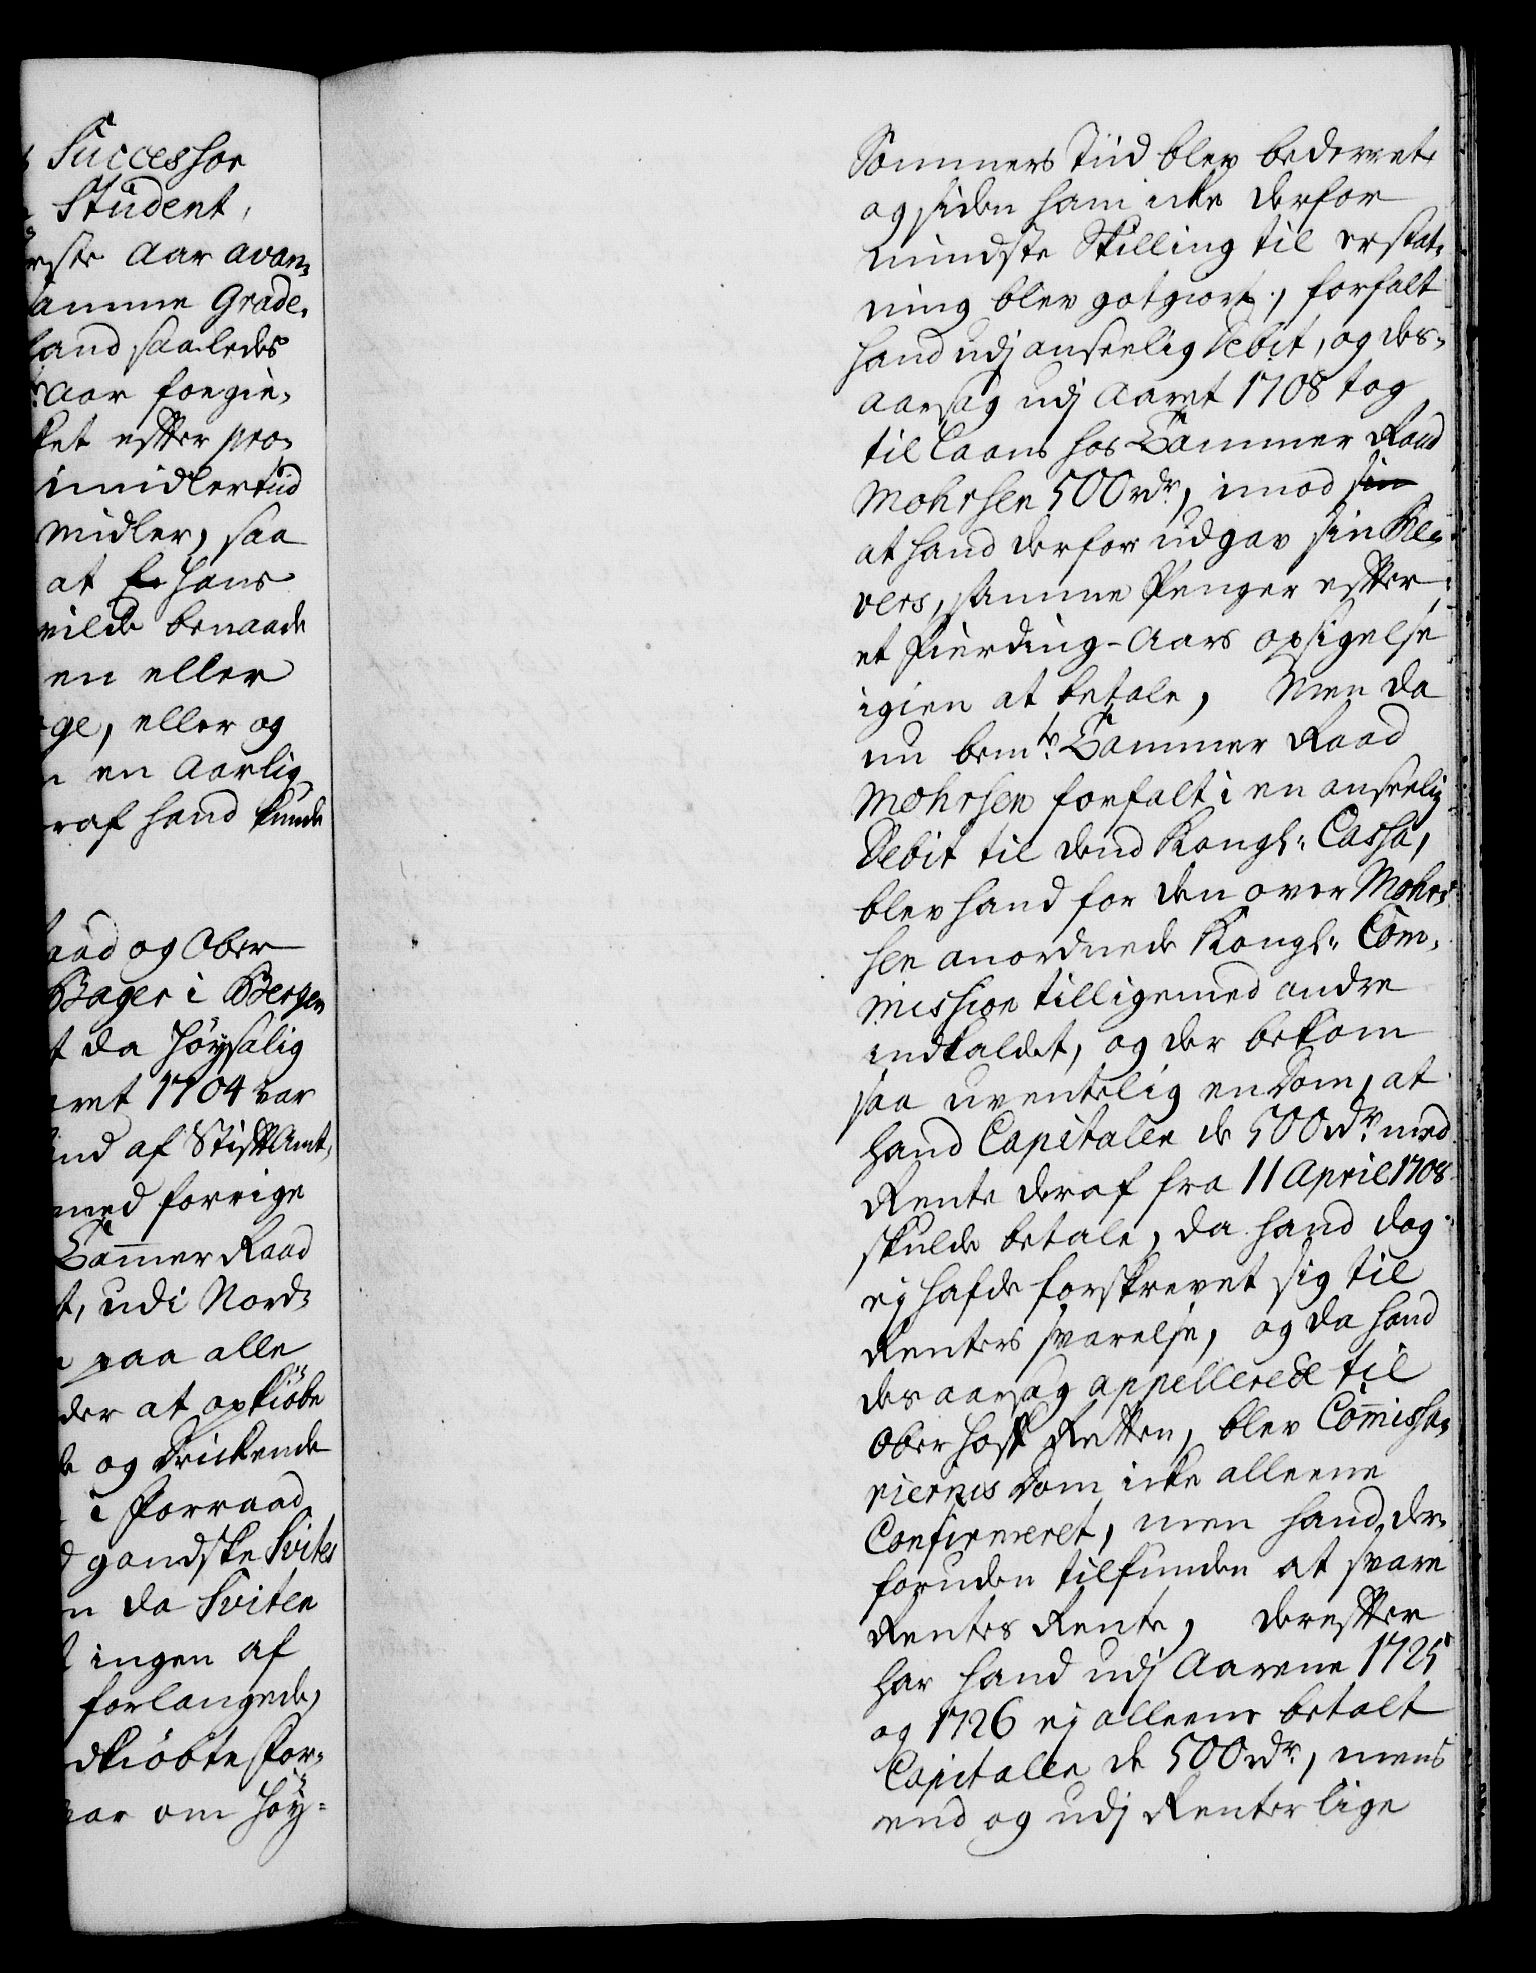 Successor
Student,
rste Aar avan-
amme Grade.
hand saaledes
Aar foregie,
ket efter pro-
imidlertiid
midler, saa
at hans
vilde benaade
en eller
ge, eller og
en Aarlig
raf hand kunde
aad og Ober
Bager i Bergen
t da Høysalig
aret 1704 var
ind af Stiftamt-
med forrige
Cammer Raad
t, udi Nord-
paa alle
der at opkiøbe
og drickende
i Forraad
gandske Svites
n da Sviten
ingen af
forlangede,
dkiøbte For-
var om Høy-
Sommers Tiid blev bedervet
og siden ham icke derfor
mindste Skilling til erstat-
ning blev gotgiort, forfalt
hand udj anseelig Debit, og des-
aarsag udj Aaret 1708 tog
til Laans hos Cammer Raad
Mohrsen 500 rdr, imod sin
at hand derfor udgav sin Re-
vers, samme Penger efter
et Fierding-Aars opsigelse
igien at betale, Men da
nu bemte Cammer Raad
Mohrsen forfalt i en anseelig
Debit til dend Kongl. Cassa,
blev hand for den over Mohr-
sen anordnede Kongl. Com-
mission tilligemed andre
indkaldet, og der bekom
saa uventelig en Dom, at
hand Capitalen de 500 rdr med
Rente deraf fra 11 April 1708
skulde betale, da hand dog
ej hafde forskrevet sig til
Renters svarelse, og da hand
des aarsag appellerede til
Ober Hoff Retten, blev Commissa-
riernes Dom icke alleene
Confirmeret, men hand der-
foruden tilfunden at svare
Rentes Rente, derefter
har hand udj Aarene 1725
og 1726 ej alleene betalt
Capitalen de 500 rdr, mens
end og udj Renter lige